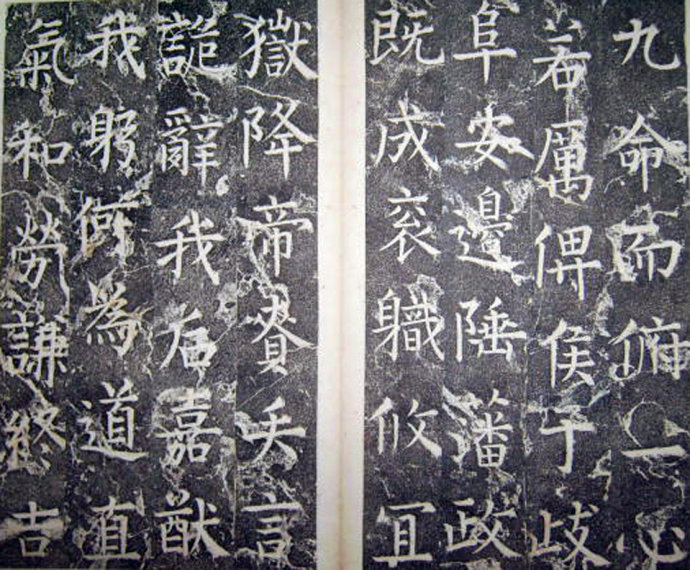 九命而俯一心
若厲俾侯于歧
阜安邊陲藩政
既成袞軄攸冝
獄降帝賚矢言
辭我后嘉猷
我躬何為道直
氣和勞謙終吉